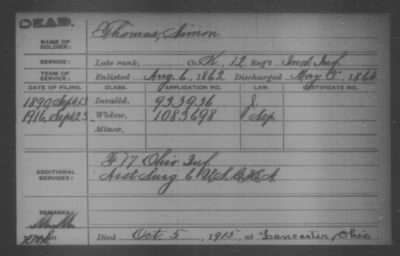 DEAD.
NAME OF SOLDIER: Thomas, Simon
SERVICE: Late rank, Co. K, 12 Reg't Ind. Inf.
TERM OF SERVICE: Enlisted Aug. 6, 1862 Discharged May 1866
DATE OF FILING. CLASS. APPLICATION NO. LAW. CERTIFICATE NO.
1890 Sept 13 Invalid, 933936 J.
1916 Sept 23 Widow, 1083698 Sep.
Minor,
ADDITIONAL SERVICES: F 77 Ohio Inf.
Asst. Surg 6 U.S.
REMARKS:
Died Oct. 5, 1915, at Lancaster, Ohio